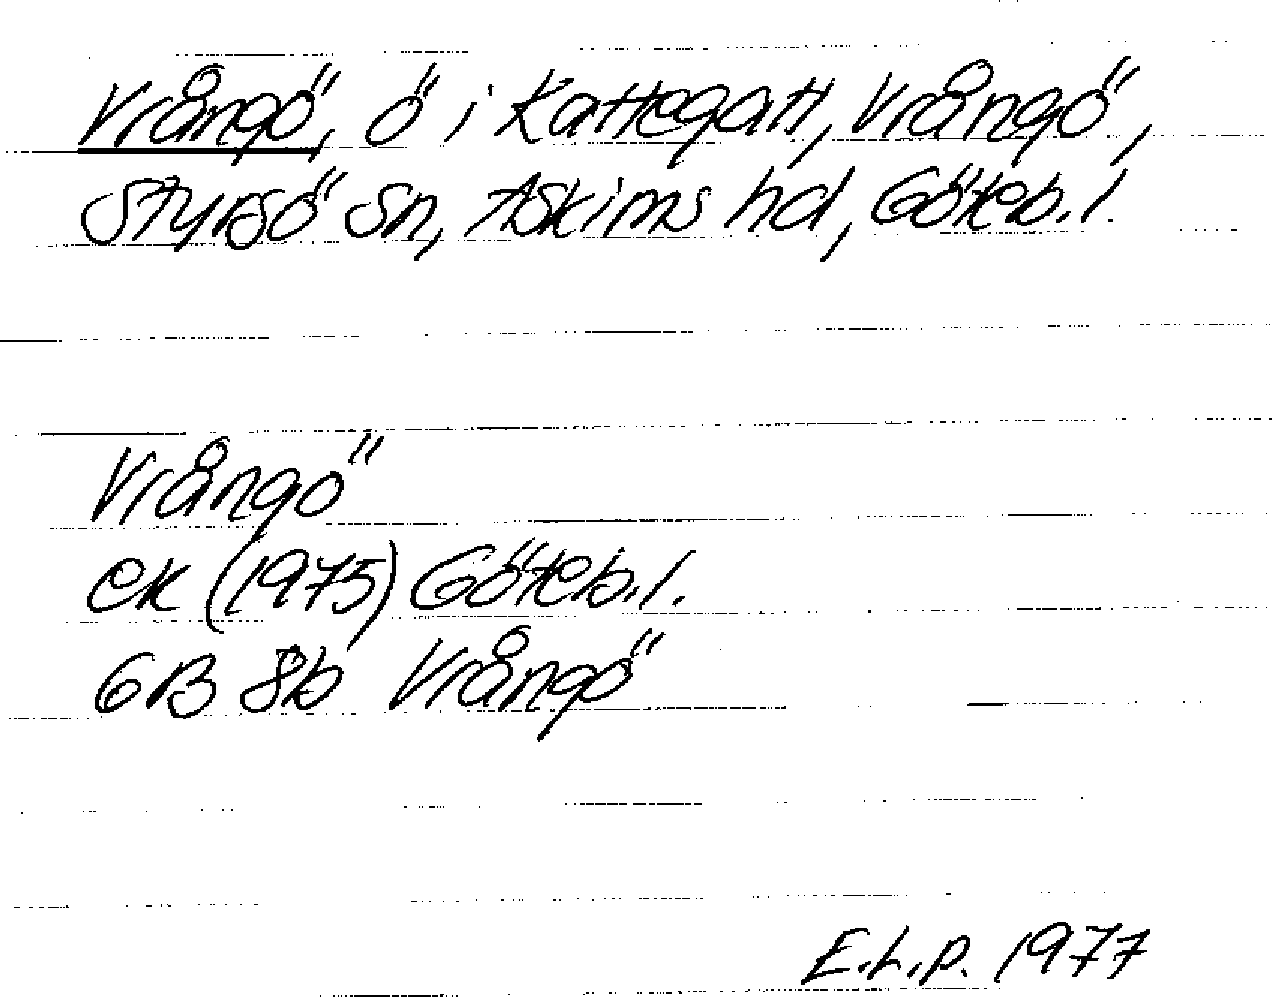 Vrångö, ö i Kattegatt, Vrångö,
Styrsö sn, Askims hd, Göteb. l.
Vrångö
ek (1975) Göteb. l.
6B 8b Vrångö
E.L.P. 1977